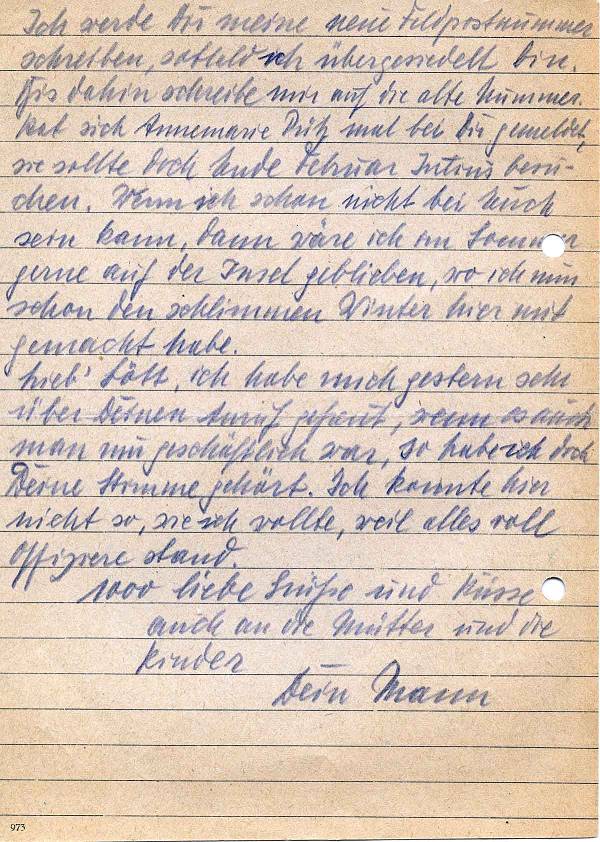 Ich werde Dir meine neue Feldpostnummer
schreiben, sobald ich übergesiedelt bin.
Bis dahin schreibe mir auf die alte Nummer.
Hat sich Annemarie mal bei Dir gemeldet,
sie sollte doch Ende Februar besu-
chen. Wenn ich schon nicht bei Euch
sein kann, dann wäre ich im Sommer
gerne auf der Insel geblieben, wo ich nun
schon den schlimmen Winter hier mit
gemacht habe.
Lieb' Lött, ich habe mich gestern sehr
über Deinen Anruf gefreut, wenn es auch
man nur geschäftlich war, so habe ich doch
Deine Stimme gehört. Ich konnte hier
nicht so, wie ich wollte, weil alles voll
Offiziere stand.
1000 liebe Grüße und Küsse
auch an die Mütter und die
Kinder
Dein Mann
973